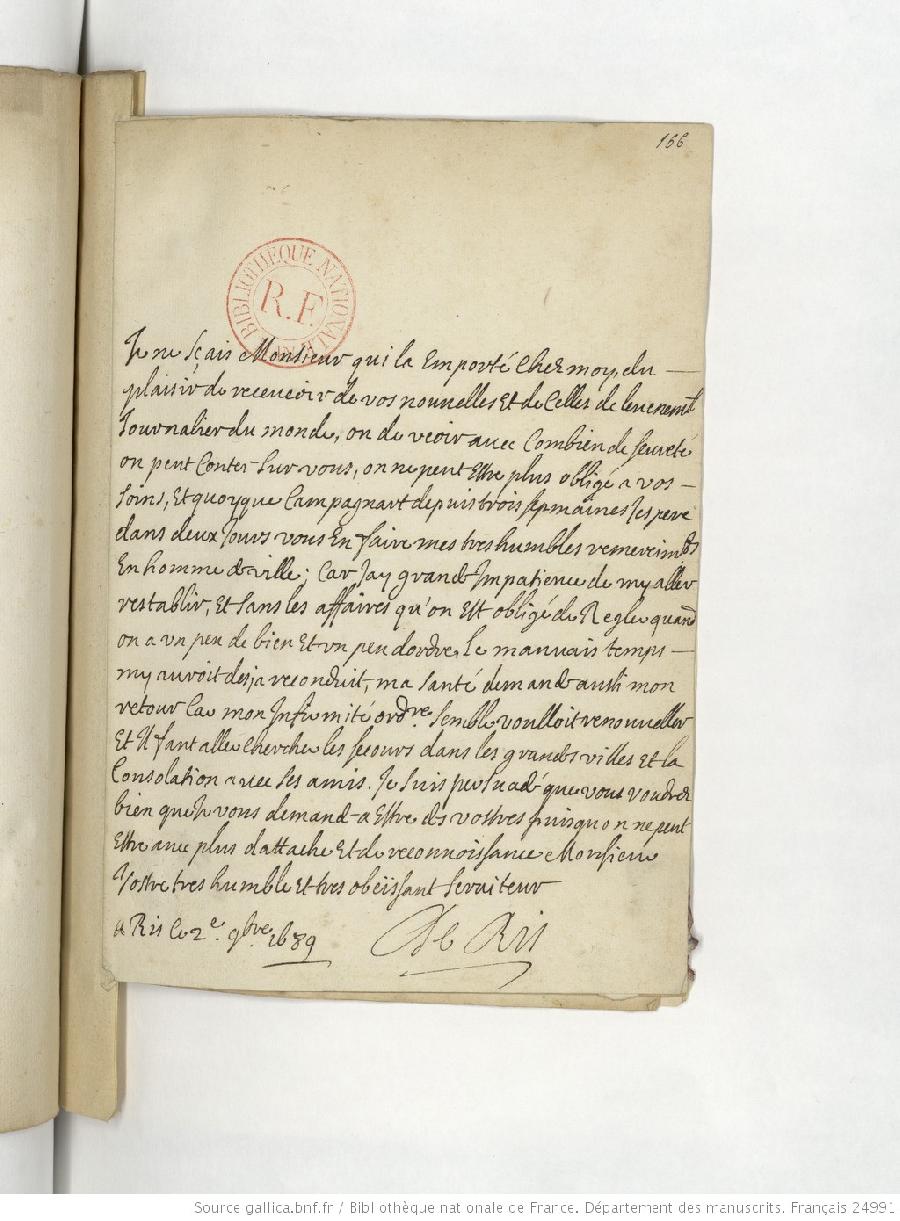 166
BIBLIOTHEQUE NATIONALE
R.F.
Je ne sçais Monsieur qui la Emporté chez moy, du
plaisir de recenvoir de vos nouvelles Et de Celles de levenemt
Journalier du monde, on de veoir avec Combien de seureté
on peut Conter sur vous, on ne peut Estre plus obligé a vos
soins, Et quoyque Campagnart depuis trois sepmaines Jespere
dans deux Jours vous En faire mes tres humbles remerciemts
En homme de ville; Car Jay grande Impatience de my aller
restablir, Et sans les affaires qu'on Est obligé de Regler quand
on a un peu de bien Et un peu dordre, le mauvais temps
my auroit desja reconduit, ma santé demande aussi mon
retour Car mon Infirmité ordre semble voulloir renouveller
Et Il faut aller chercher les secours dans les grandes villes Et la
Consolation avec ses amis. Je suis persuadé que vous voudrez
bien que Je vous demande a Estre des vostres puisquon ne peut
Estre avec plus dattache Et de reconnoissance Monsieur
Vostre tres humble Et tres obeissant serviteur
a Ris le 2e. 9bre. 1689 De Ris
Source gallica.bnf.fr / Bibliothèque nationale de France. Département des manuscrits. Français 24991